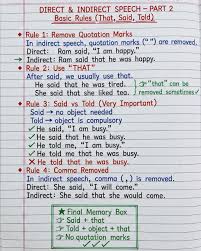 DIRECT & INDIRECT SPEECH – PART 2
Basic Rules (That, Said, Told)
Rule 1: Remove Quotation Marks
In indirect speech, quotation marks (" ") are removed.
Direct: Ram said, "I am happy."
→ Indirect: Ram said that he was happy.
Rule 2: Use "THAT"
After said, we usually use that.
He said that he was tired.
She said that she liked tea.
☞ "that" can be
removed sometimes✓
Rule 3: Said vs Told (Very Important)
Said → no object needed
Told → object is compulsory
✓ He said, "I am busy."
✓ He said, "I am busy."
✓ He told me, "I am busy."
✓ He said that he was busy.
✗ He told that he was busy.
Rule 4: Comma Removed
In indirect speech, comma (,) is removed.
Direct: She said, "I will come."
Indirect: She said that she would come.
★ Final Memory Box
Said + that
Told + object + that
No quotation marks